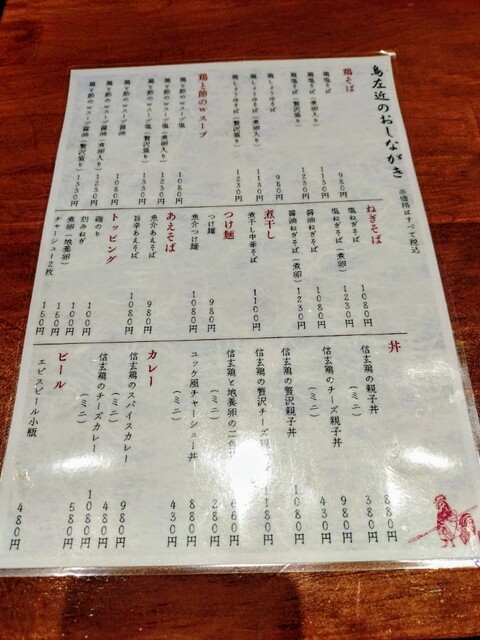 島左近のおしながき
※価格はすべて税込
鶏そば
鶏塩そば 980円
鶏塩そば(煮卵入り) 1130円
鶏塩そば(贅沢盛り) 1230円
鶏しょうゆそば 980円
鶏しょうゆそば(煮卵入り) 1130円
鶏しょうゆそば(贅沢盛り) 1230円
鶏と節のWスープ
鶏と節のWスープ塩 1080円
鶏と節のWスープ塩(煮卵入り) 1230円
鶏と節のWスープ塩(贅沢盛り) 1330円
鶏と節のWスープ醤油 1080円
鶏と節のWスープ醤油(煮卵入り) 1230円
鶏と節のWスープ醤油(贅沢盛り) 1330円
ねぎそば
塩ねぎそば 1080円
塩ねぎそば(煮卵) 1230円
醤油ねぎそば 1080円
醤油ねぎそば(煮卵) 1230円
煮干し
煮干し中華そば 1100円
つけ麺
つけ麺 980円
魚介つけ麺 1080円
あえそば
魚介あえそば 980円
旨辛あえそば 1080円
トッピング
磯のり 100円
刻みねぎ 100円
煮卵(地養卵) 150円
チャーシュー2枚 150円
丼
信玄鶏の親子丼 880円
(ミニ) 380円
信玄鶏のチーズ親子丼 980円
(ミニ) 430円
信玄鶏の贅沢親子丼 1080円
信玄鶏の贅沢チーズ親 180円
信玄鶏と地養卵の二色 660円
(ミニ) 280円
ユッケ風チャーシュー丼 880円
(ミニ) 430円
カレー
信玄鶏のスパイスカレー 980円
(ミニ) 480円
信玄鶏のチーズカレー 1080円
(ミニ) 580円
ビール
エビスビール小瓶 480円